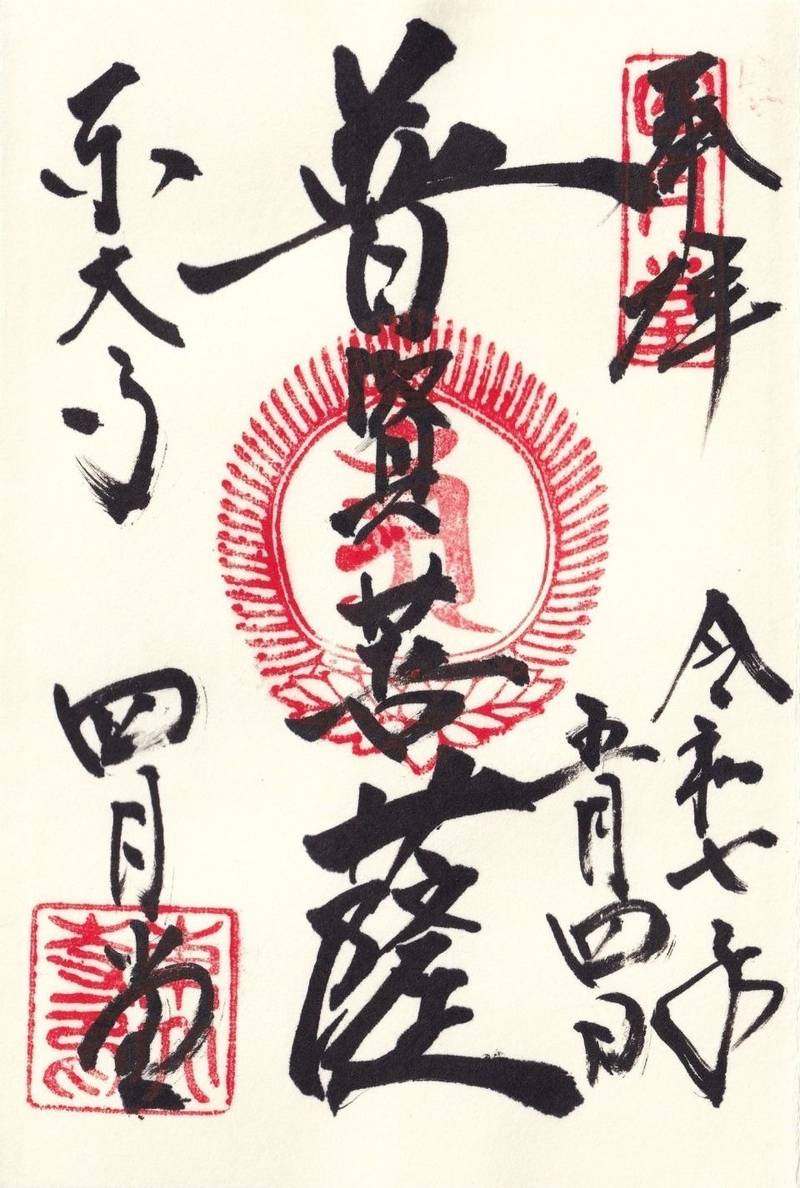 奉拝
四月堂
令和七年
五月四日
普賢菩薩
東大寺
四月堂